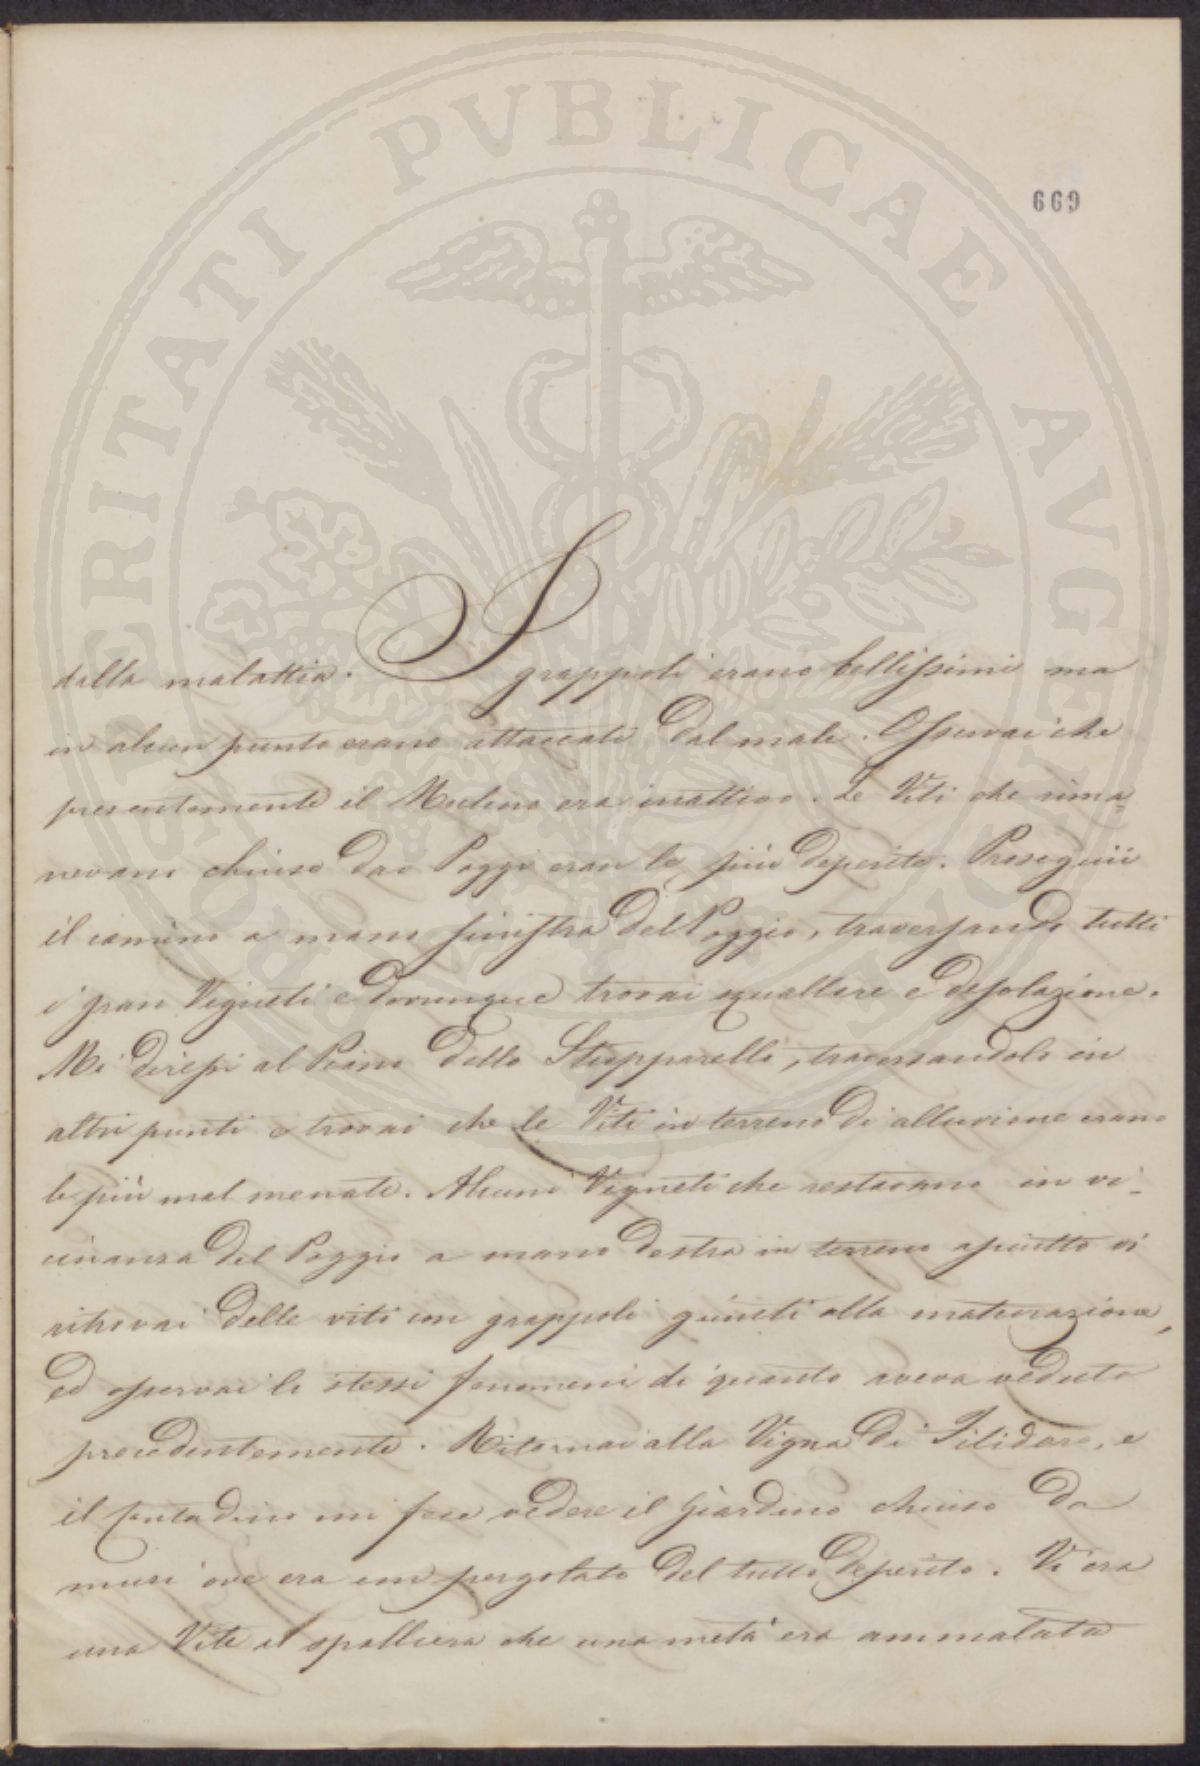 PROSPERITATI PVBLICAE AVGENDAE
669
dalla malattia. I grappoli erano bellissimi ma
in alcun punto erano attaccati dal male. Osservai che
presentemente il Mulino era inattivo. Le Viti che rima=
nevano chiuse dao Poggi eran le più deperite. Proseguii
il camino a mano sinistra del Poggio, traversando tutti
i gran Vigneti e dovunque trovai squallore e desolazione.
Mi diressi al Piano dello Stupparello, traversandolo in
altri punti e trovai che le Viti in terreno di alluvione erano
le più mal menate. Alcuni Vigneti che restavano in vi=
cinanza del Poggio a mano destra in terreno asciutto vi
ritrovai delle viti con grappoli giunti alla maturazione,
ed osservai li stessi fenomeni di quanto aveva veduto
precedentemente. Ritornai alla Vigna di Filidoro, e
il Contadino mi fece vedere il Giardino chiuso da
muri ove era un pergolato del tutto deperito. Vi era
una Vite a spalliera che una metà era ammalata